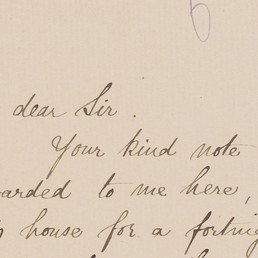 dear Sir.
Your kind note
arded to me here,
house for a fortnig